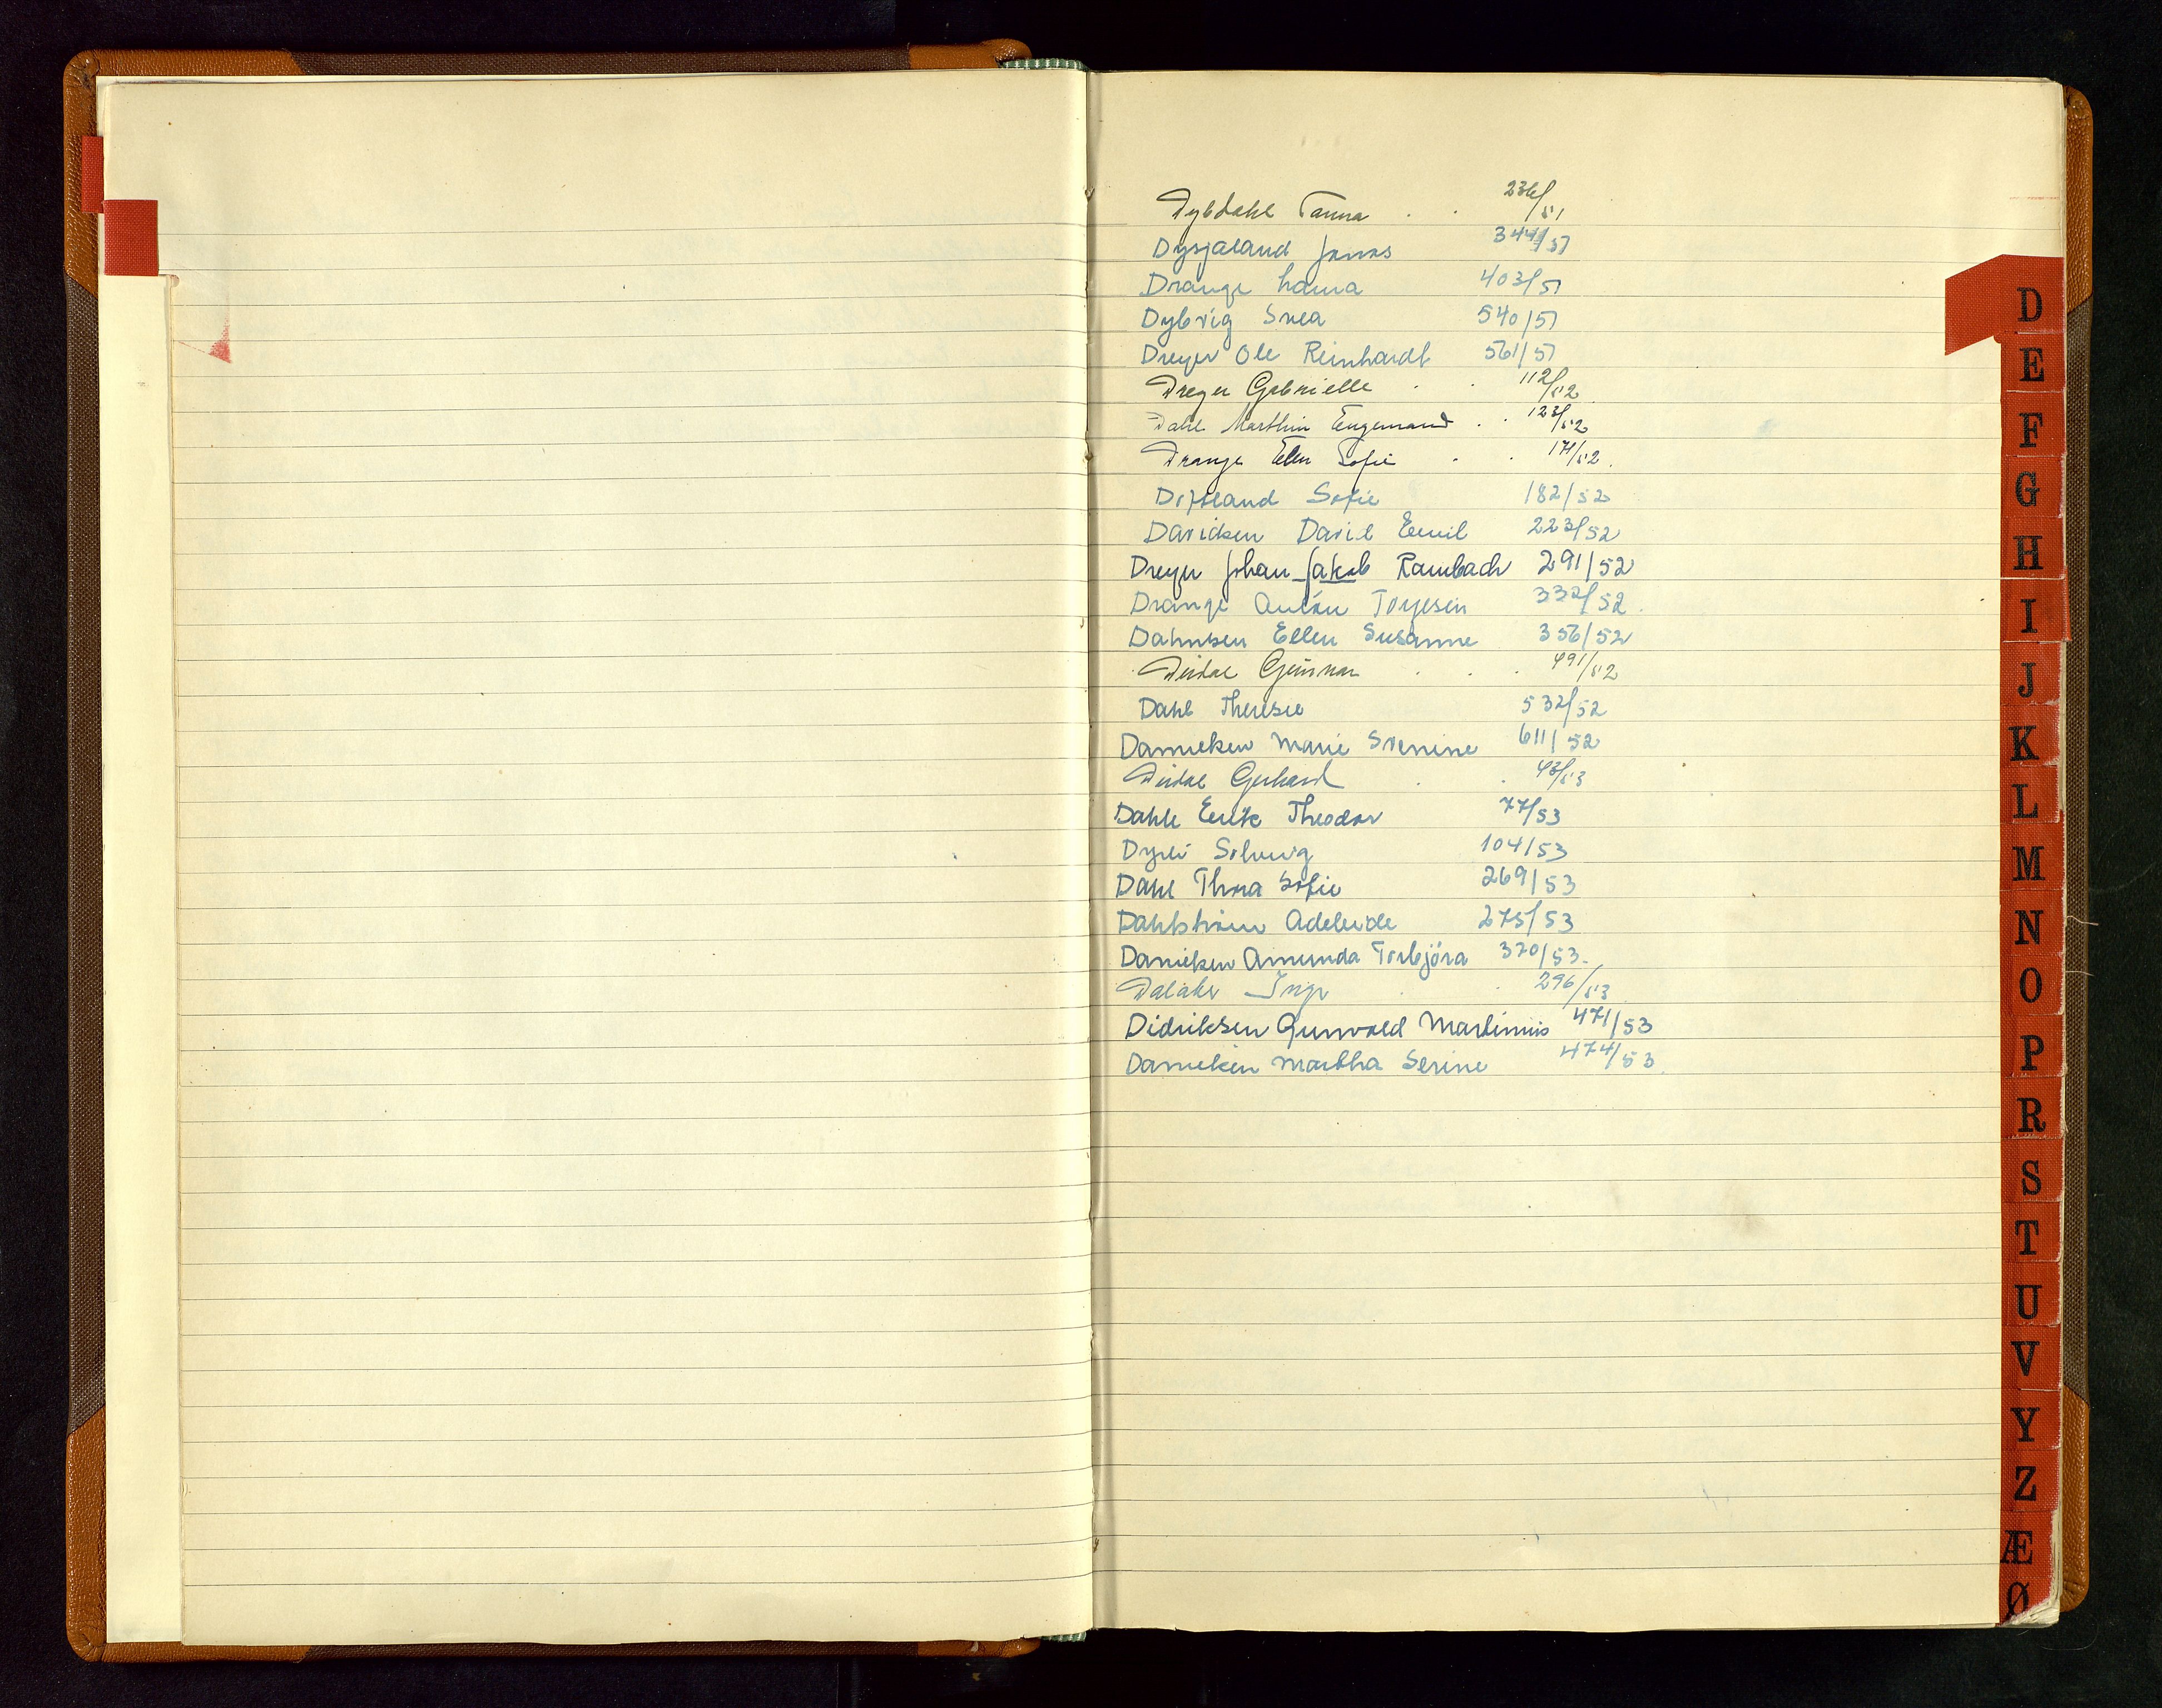 Dybdahl Fanna . . 236/51
Dysjaland Jonas 344/51
Drange Laura 403/51
Dybvig Svea 540/51
Dreyer Ole Reinhardt 561/51
Dreyer Gabrielle . . 112/52
Dahl Marthin Engemand . . 123/52
Drange Ellen Sofie . . 171/52.
Sofie 182/52
Davidsen David Emil 223/52
Dreyer Johan Jakob Rambach 291/52
Drange Anton Torjesen 332/52.
Dahntsen Ellen Susanne 356/52
Dirdal Gunnar . . . 491/52
Dahl Therese 532/52
Danielsen Marie Svenine 611/52
Dirdal Gerhard . . 43/53
Dahle Erik Theodor 77/53
Dyrli Solveig 104/53
Dahl Thora Sofie 269/53
Dahlstrøm Adeleide 275/53
Danielsen Amunda Torbjöra 370/53.
Dalaker Inga . . 296/53
Didriksen Gunvald Martinius 471/53
Danielsen Martha Serine 474/53.
D
E
F
G
H
I
J
K
L
M
N
O
P
R
S
T
U
V
Y
Z
Æ
Ø